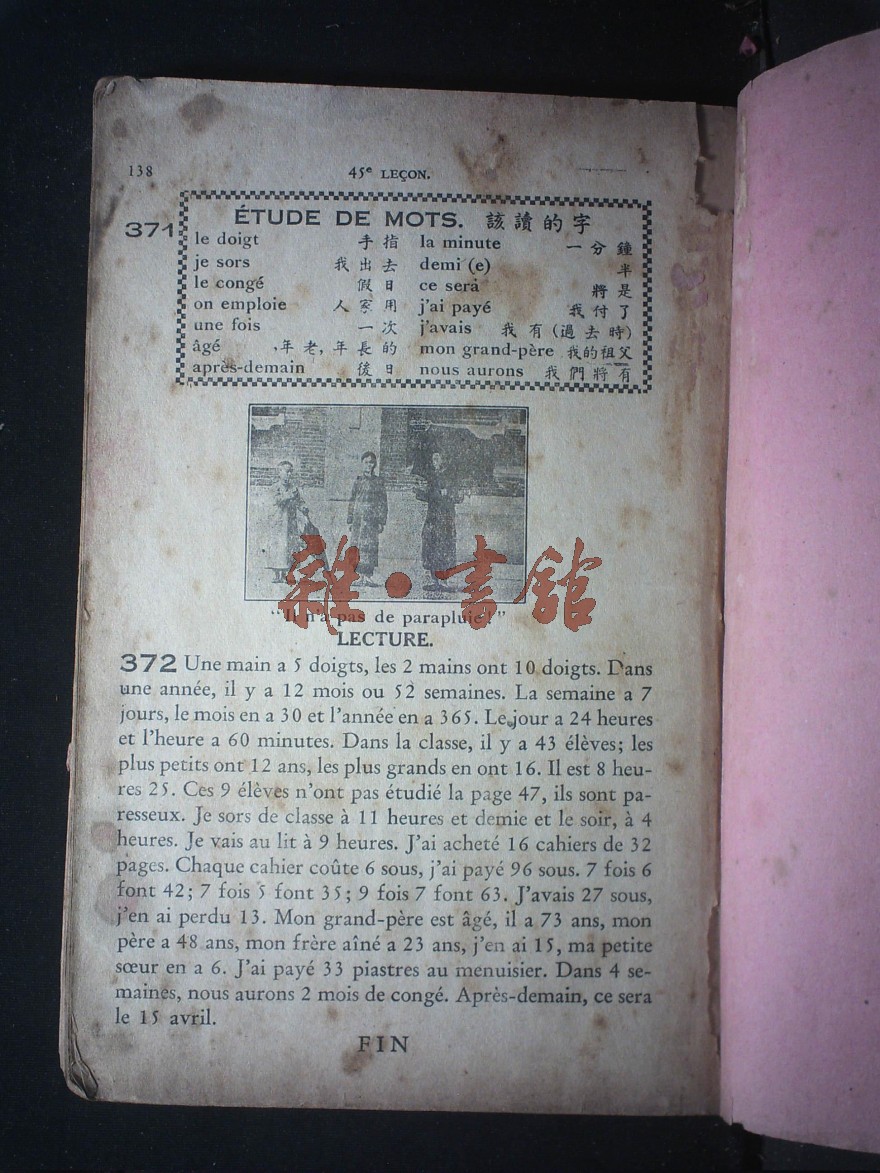 138
45e LEÇON.
371
ÉTUDE DE MOTS. 該讀的字
le doigt 手指 la minute 一分鐘
je sors 我出去 demi (e) 半
le congé 假日 ce sera 將是
on emploie 人家用 j'ai payé 我付了
une fois 一次 j'avais 我有(過去時)
âgé 年老,年長的 mon grand-père 我的祖父
après-demain 後日 nous aurons 我們將有
雜·書館
"Il n'a pas de parapluie!"
LECTURE.
372 Une main a 5 doigts, les 2 mains ont 10 doigts. Dans
une année, il y a 12 mois ou 52 semaines. La semaine a 7
jours, le mois en a 30 et l'année en a 365. Le jour a 24 heures
et l'heure a 60 minutes. Dans la classe, il y a 43 élèves; les
plus petits ont 12 ans, les plus grands en ont 16. Il est 8 heu-
res 25. Ces 9 élèves n'ont pas étudié la page 47, ils sont pa-
resseux. Je sors de classe à 11 heures et demie et le soir, à 4
heures. Je vais au lit à 9 heures. J'ai acheté 16 cahiers de 32
pages. Chaque cahier coûte 6 sous, j'ai payé 96 sous. 7 fois 6
font 42; 7 fois 5 font 35; 9 fois 7 font 63. J'avais 27 sous,
j'en ai perdu 13. Mon grand-père est âgé, il a 73 ans, mon
père a 48 ans, mon frère aîné a 23 ans, j'en ai 15, ma petite
sœur en a 6. J'ai payé 33 piastres au menuisier. Dans 4 se-
maines, nous aurons 2 mois de congé. Après-demain, ce sera
le 15 avril.
FIN